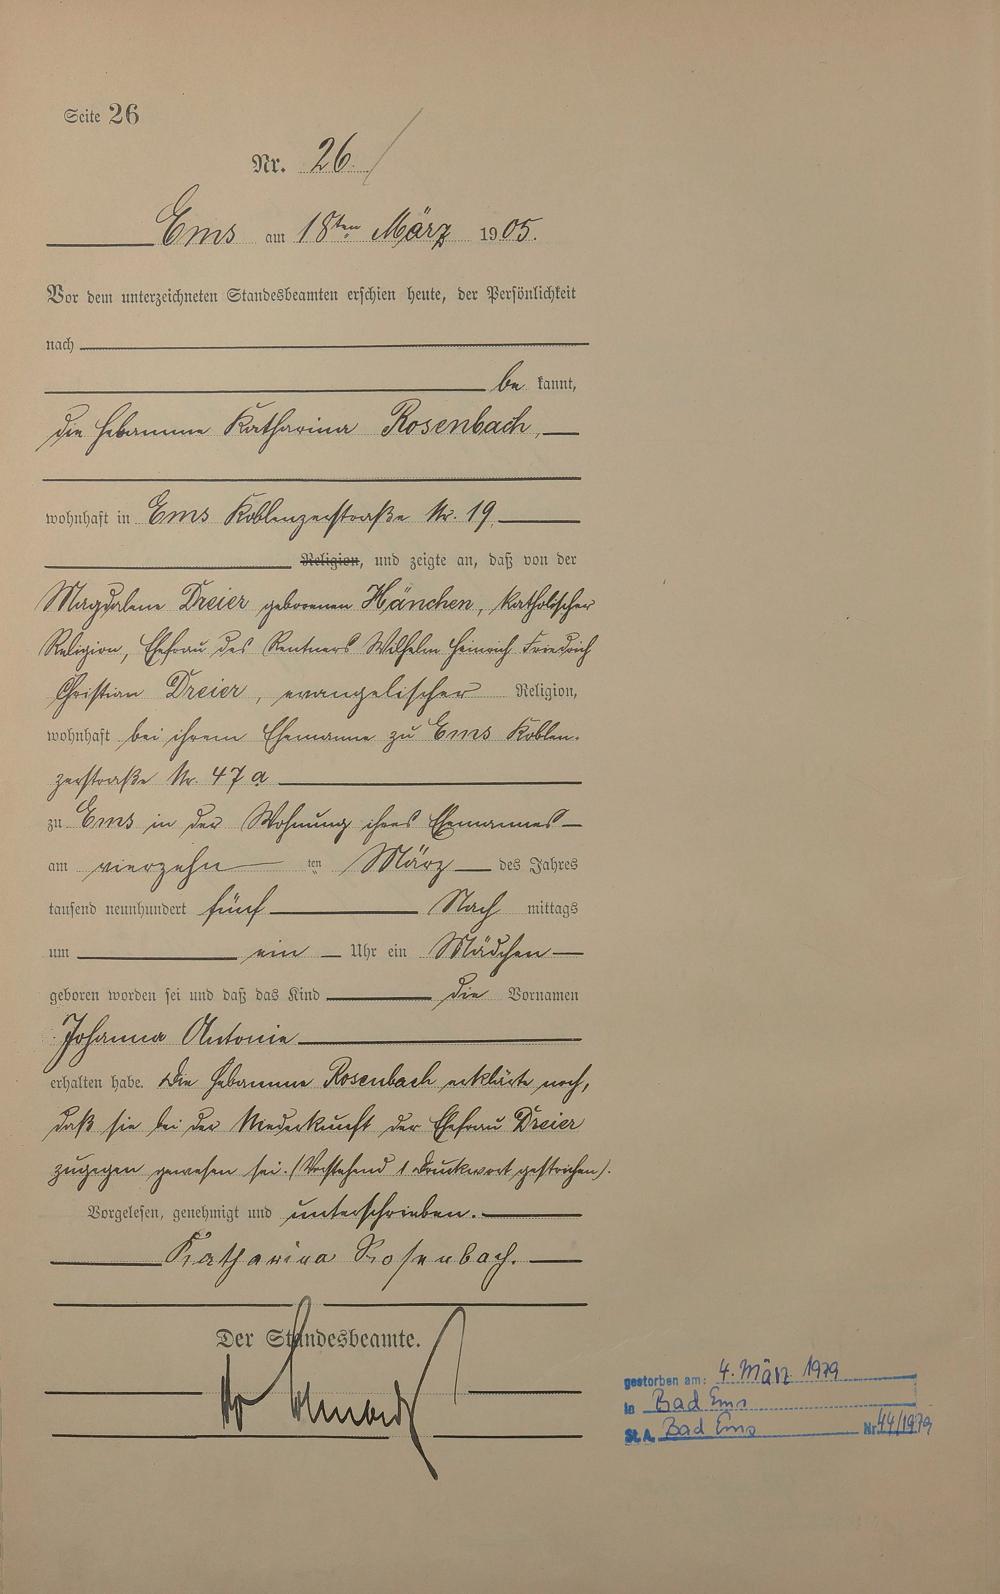 Seite 26
Nr. 26.
Ems am 18ten März 1905.
Vor dem unterzeichneten Standesbeamten erschien heute, der Persönlichkeit
nach
be kannt,
die Hebamme Katharina Rosenbach,
wohnhaft in Ems Koblenzerstraße Nr. 19,
Religion, und zeigte an, daß von der
Magdalene Dreier geborenen Hänchen, katholischer
Religion, Ehefrau des Rentners Wilhelm Heinrich Friedrich
Christian Dreier, evangelischer Religion,
wohnhaft bei ihrem Ehemanne zu Ems Koblen-
zerstraße Nr. 47a
zu Ems in der Wohnung ihres Ehemannes
am vierzehn ten März des Jahres
tausend neunhundert fünf Nach mittags
um ein Uhr ein Mädchen
geboren worden sei und daß das Kind die Vornamen
Johanna Antonie
erhalten habe. Die Hebamme Rosenbach erklärte noch,
daß sie bei der Niederkunft der Ehefrau Dreier
zugegen gewesen sei. (Vorstehend 1 Druckwort gestrichen).
Vorgelesen, genehmigt und unterschrieben.
Katharina Rosenbach.
Der Standesbeamte.
gestorben am: 4. März 1979
in Bad Ems
St.A. Bad Ems Nr. 44/1979